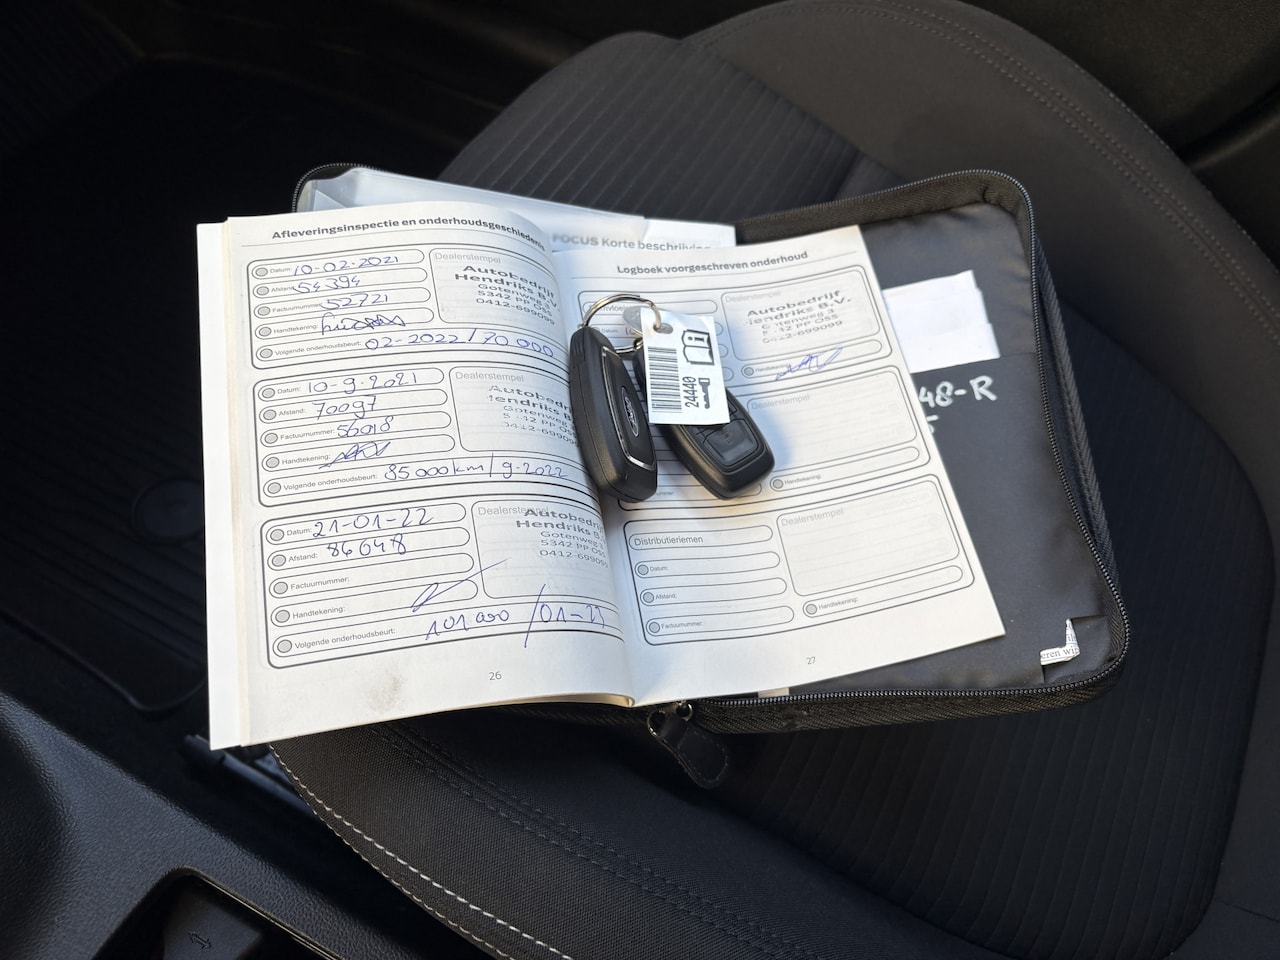 Afleveringsinspectie en onderhoudsgeschiedenis
Datum: 10-02-2021
Afstand: 54394
Factuurnummer: 52721
Handtekening:
Volgende onderhoudsbeurt: 02-2022/70 000
Dealerstempel
Autobedrijf
Hendriks B.V.
Gotenweg 3
5342 PP OSS
0412-699099
Datum: 10-9-2021
Afstand: 70097
Factuurnummer: 56018
Handtekening:
Volgende onderhoudsbeurt: 85 000km/9-2022
Dealerstempel
Autobedrijf
Hendriks
Gotenweg
0412-699099
Datum: 21-01-22
Afstand: 86048
Factuurnummer:
Handtekening:
Volgende onderhoudsbeurt: 101 000/01-23
Dealerstempel
Autobedrijf
Hendriks
Gotenweg
5342 PP OSS
0412-699099
26
FOCUS Korte beschrijving
Logboek voorgeschreven onderhoud
Datum:
Dealerstempel
Autobedrijf
Hendriks B.V.
Gotenweg 3
5342 PP OSS
0412-699099
Handtekening:
Dealerstempel
Handtekening:
Distributieriemen
Datum:
Afstand:
Factuurnummer:
Dealerstempel
Handtekening:
27
24440
Ford
48-R
eren wi